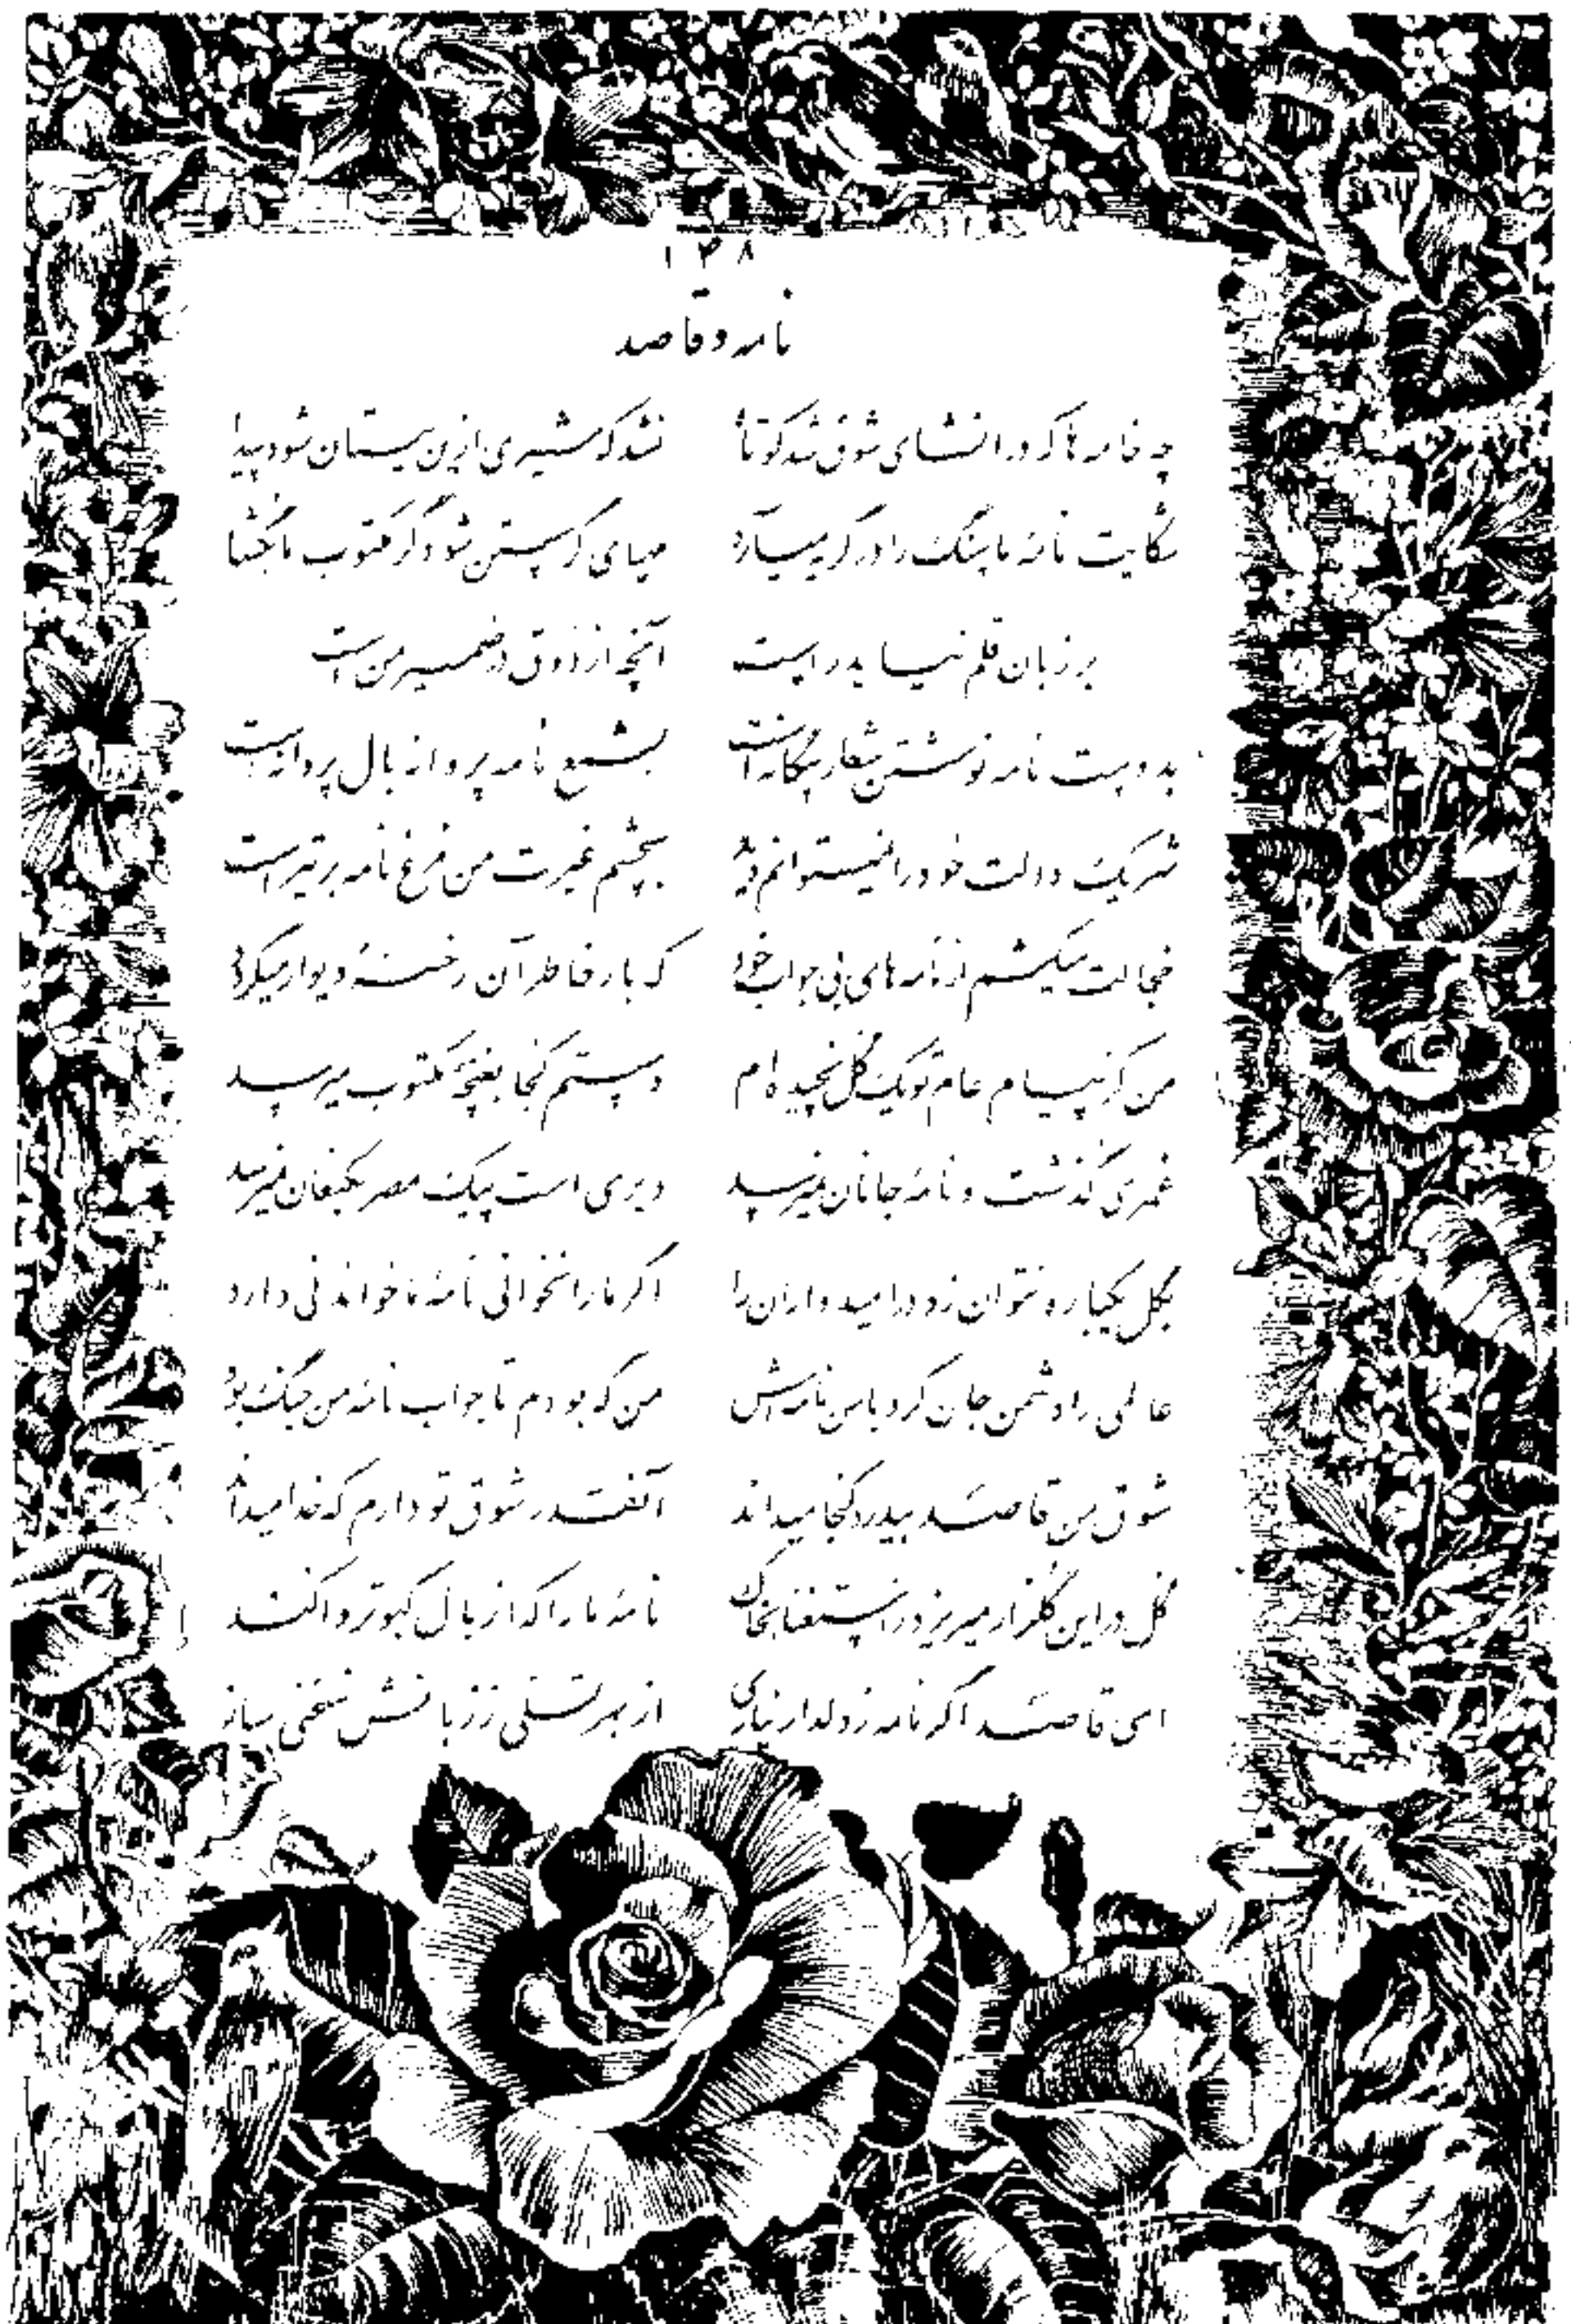 ۱۴۸
نامه و قاصد
چه خامه ها که در انشای شوق شد کوتاه نشد که مشیری ازین نیستان شود پیدا
شکایت نامهٔ ما سنگ را در گریه میآرد مهیای گرستن شو دگر مکتوب ما بگشا
بر زبان قلم نیاید راست آنچه از ذوق در ضمیر من است
بدوست نامه نوشتن شعار بیگانه است بشمع نامه پروانه بال پروانه است
شریک دولت خود را نمیتوانم دید بچشم غیرت من مرغ نامه بر تیر است
خجالت میکشم از نامه های بی جواب خود که بار خاطر آن رخنهٔ دیوار میگردد
من کز پیام عام تو یک گل نچیده ام دستم کجا بغنچهٔ مکتوب میرسد
عمری گذشت و نامهٔ جانان نمیرسد دیری است پیک مصر بکنعان نمیرسد
بگل یکباره نتوان زد در امیدواران را اگر ما را نخوانی نامهٔ ما خواندنی دارد
عالمی را دشمن جان کرد با من نامه اش من که بودم تا جواب نامهٔ من جنگ بود
شوق من قاصد بیدرد کجا میداند آنقدر شوق تو دارم که خدا میداند
گل در این گلزار میریزد ز استغنا بخاک نامهٔ ما را که از بال کبوتر وا کند
ای قاصد اگر نامه ز دلدار نیاری از بهر تسلی ز زبانش سخنی ساز